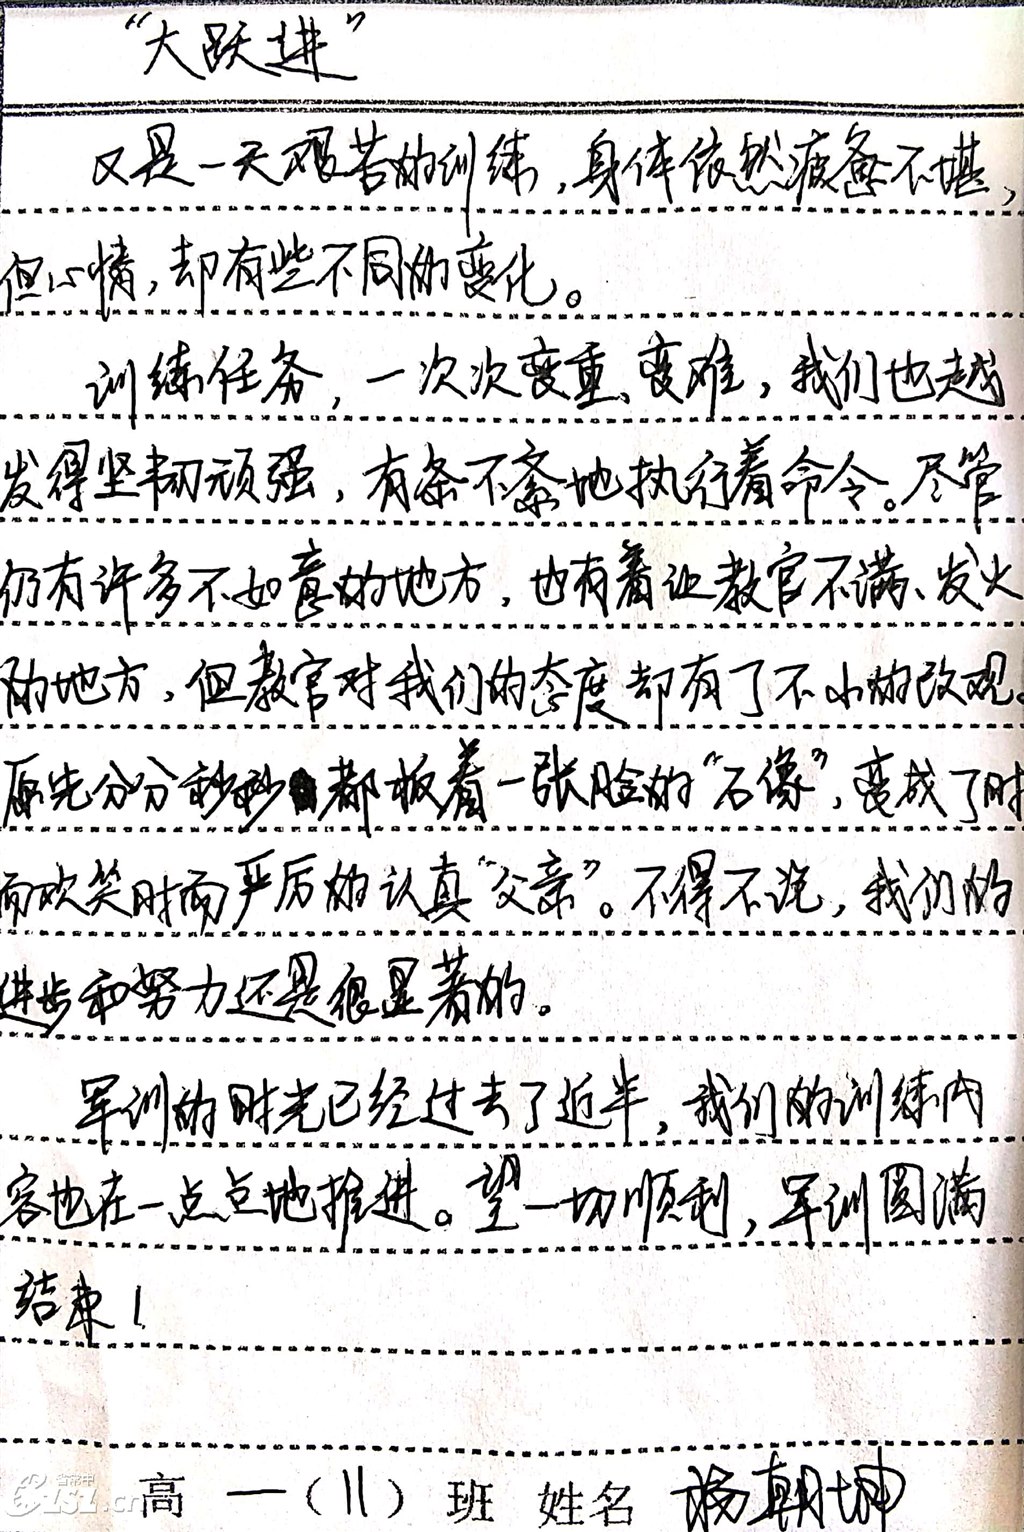 “大跃进”
又是一天艰苦的训练，身体依然疲惫不堪，
但心情，却有些不同的变化。
训练任务，一次次变重、变难，我们也越
发得坚韧顽强，有条不紊地执行着命令。尽管
仍有许多不如意的地方，也有着让教官不满、发火
的地方，但教官对我们的态度却有了不小的改观。
原先分分秒秒都板着一张脸的“石像”，变成了时
而欢笑时而严厉的认真“父亲”。不得不说，我们的
进步和努力还是很显著的。
军训的时光已经过去了近半，我们的训练内
容也在一点点地推进。望一切顺利，军训圆满
结束！
高一（11）班 姓名 杨朝坤
省常中
CZSZ.cn